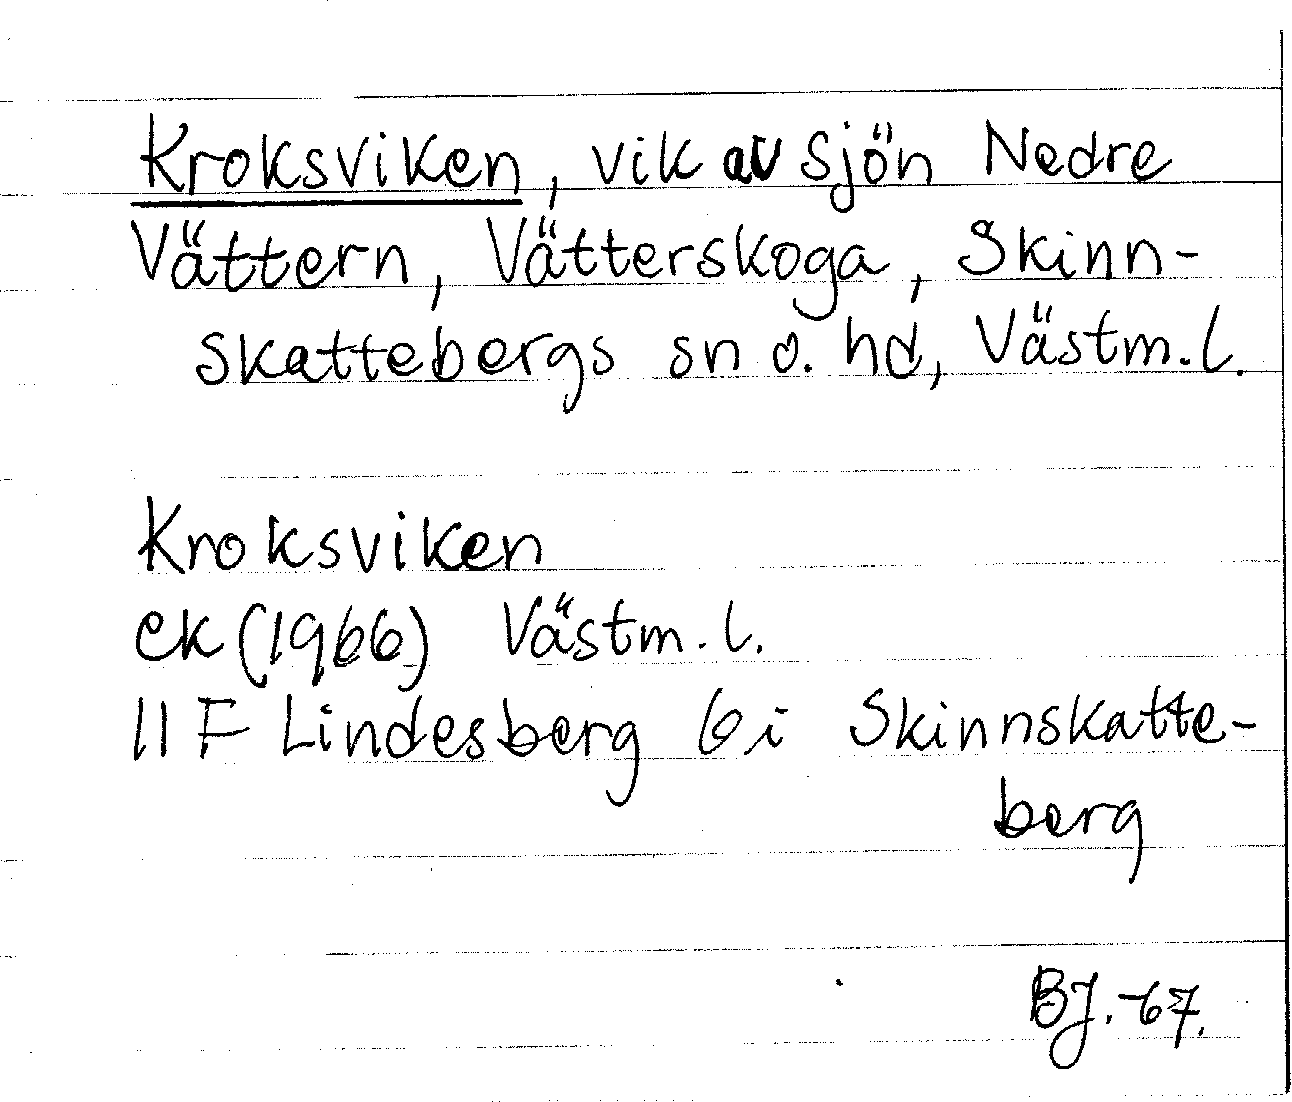 Kroksviken, vik av sjön Nedre
Vättern, Vätterskoga, Skinn-
skattebergs sn o. hd, Västm. l.
Kroksviken
ek (1966) Västm. l.
11 F Lindesberg 6 i Skinnskatte-
berg
BJ. -67.